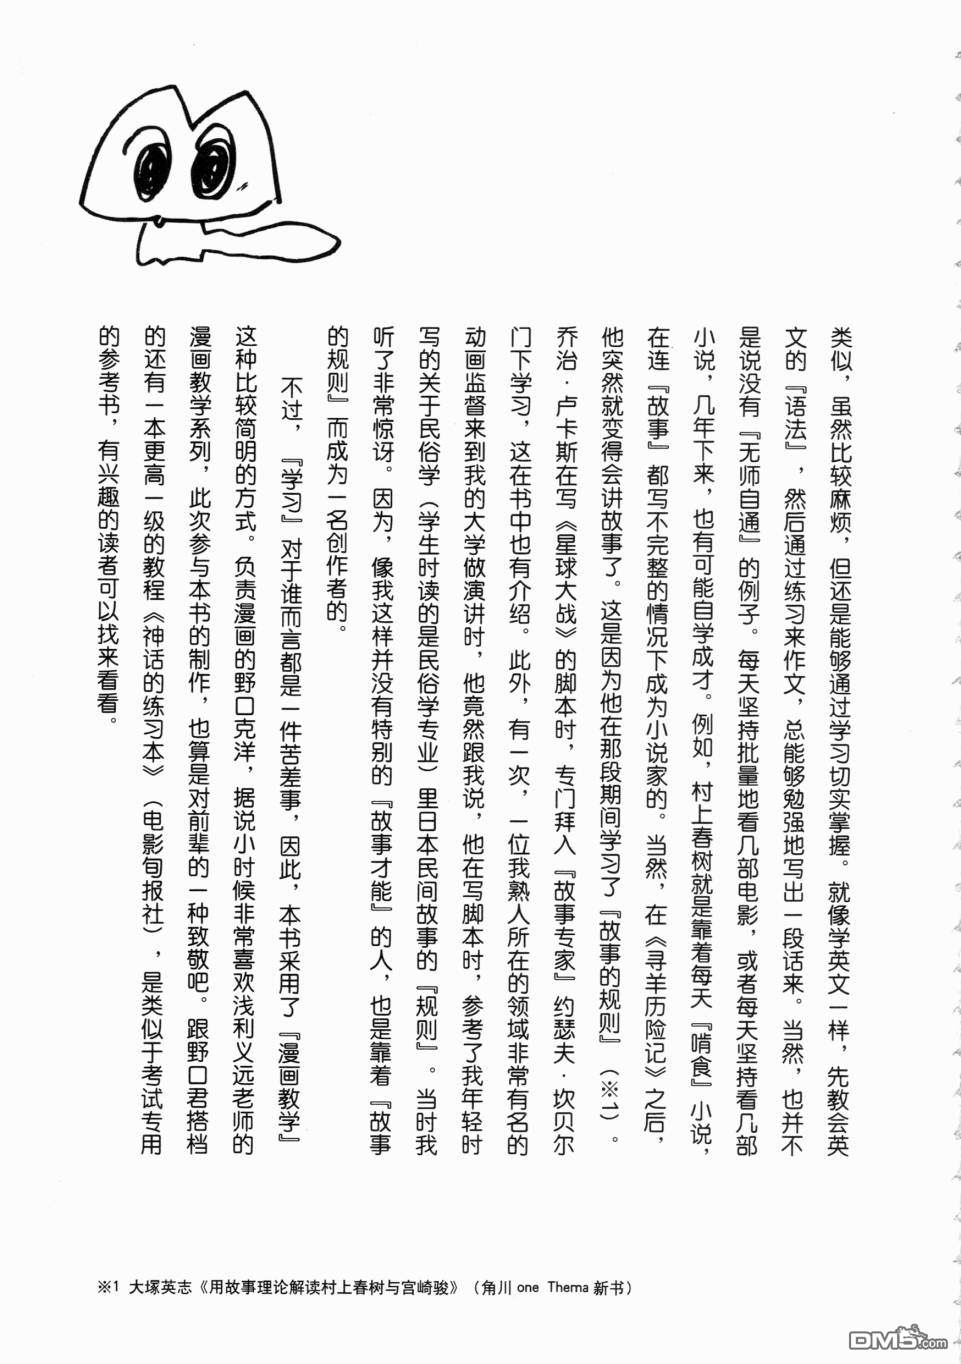 类似，虽然比较麻烦，但还是能够通过学习切实掌握。就像学英文一样，先教会英
文的『语法』，然后通过练习来作文，总能够勉强地写出一段话来。当然，也并不
是说没有『无师自通』的例子。每天坚持批量地看几部电影，或者每天坚持看几部
小说，几年下来，也有可能自学成才。例如，村上春树就是靠着每天『啃食』小说，
在连『故事』都写不完整的情况下成为小说家的。当然，在《寻羊历险记》之后，
他突然就变得会讲故事了。这是因为他在那段期间学习了『故事的规则』（※1）。
乔治·卢卡斯在写《星球大战》的脚本时，专门拜入『故事专家』约瑟夫·坎贝尔
门下学习，这在书中也有介绍。此外，有一次，一位我熟人所在的领域非常有名的
动画监督来到我的大学做演讲时，他竟然跟我说，他在写脚本时，参考了我年轻时
写的关于民俗学（学生时读的是民俗学专业）里日本民间故事的『规则』。当时我
听了非常惊讶。因为，像我这样并没有特别的『故事才能』的人，也是靠着『故事
的规则』而成为一名创作者的。
不过，『学习』对于谁而言都是一件苦差事，因此，本书采用了『漫画教学』
这种比较简明的方式。负责漫画的野口克洋，据说小时候非常喜欢浅利义远老师的
漫画教学系列，此次参与本书的制作，也算是对前辈的一种致敬吧。跟野口君搭档
的还有一本更高一级的教程《神话的练习本》（电影旬报社），是类似于考试专用
的参考书，有兴趣的读者可以找来看看。
※1 大塚英志《用故事理论解读村上春树与宫崎骏》（角川 one Thema 新书）
DM5.com